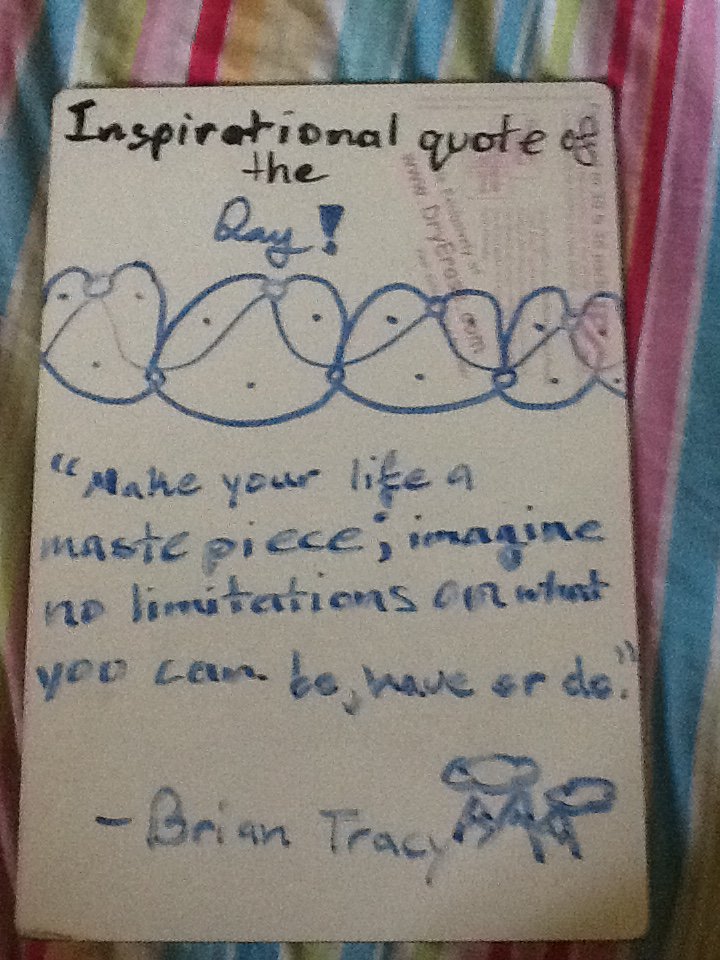 Inspirational quote of
the
Day!
"Make your life a
maste piece; imagine
no limitations on what
you can be, have or do."
- Brian Tracy